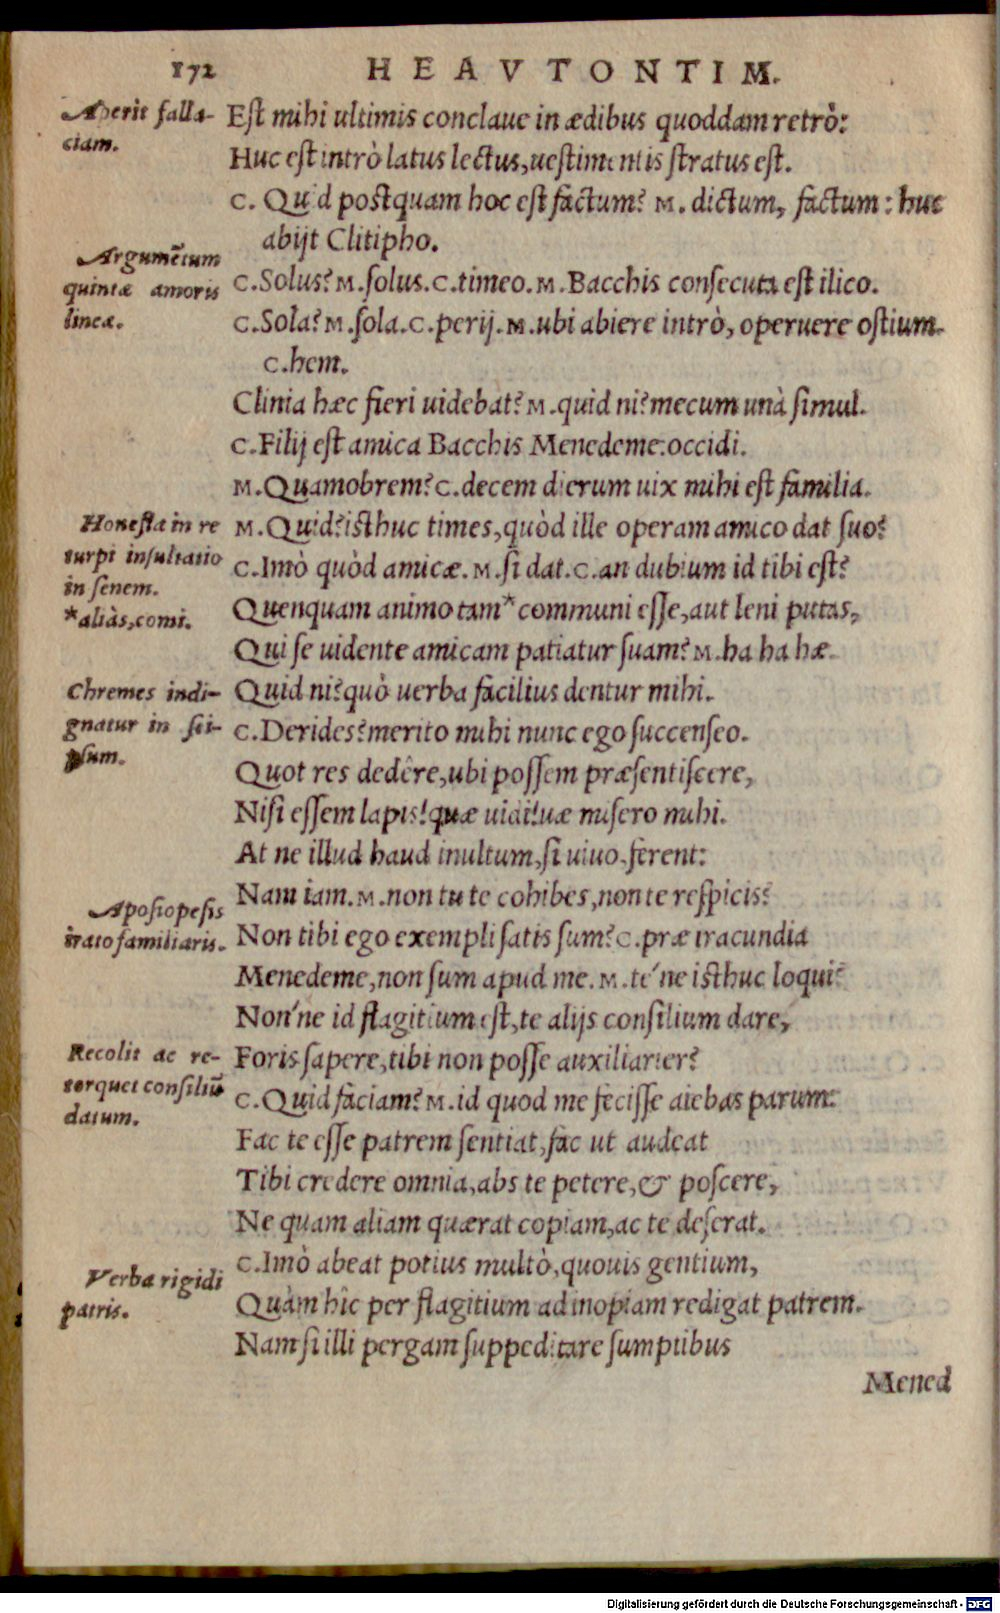 172 HEAVTONTIM.
Aperit falla-
ciam.
Est mihi ultimis conclaue in ædibus quoddam retrò:
Huc est intrò latus lectus, uestimentis stratus est.
C. Quid postquam hoc est factum? M. dictum, factum: huc
abijt Clitipho.
Argumētum
quintæ amoris
lineæ.
C. Solus? M. solus. C. timeo. M. Bacchis consecuta est ilico.
C. Sola? M. sola. C. perij. M. ubi abiere intrò, operuere ostium.
C. hem.
Clinia hæc fieri uidebat? M. quid ni? mecum unà simul.
C. Filij est amica Bacchis Menedeme: occidi.
M. Quamobrem? C. decem dierum uix mihi est familia.
Honesta in re
turpi insultatio
in senem.
*aliàs, comi.
M. Quid? isthuc times, quòd ille operam amico dat suo?
C. Imò quòd amicæ. M. si dat. C. an dubium id tibi est?
Quenquam animo tam* communi esse, aut leni putas,
Qui se uidente amicam patiatur suam? M. ha ha hæ.
Chremes indi-
gnatur in sei-
psum.
Quid ni? quò uerba facilius dentur mihi.
C. Derides? merito mihi nunc ego succenseo.
Quot res dedêre, ubi possem præsentiscere,
Nisi essem lapis! quæ uidi! uæ misero mihi.
At ne illud haud inultum, si uiuo, ferent:
Nam iam. M. non tu te cohibes, non te respicis?
Aposiopesis
irato familiaris.
Non tibi ego exempli satis sum? C. præ iracundia
Menedeme, non sum apud me. M. te´ne isthuc loqui?
Non´ne id flagitium est, te alijs consilium dare,
Recolit ac re-
torquet consiliū
datum.
Foris sapere, tibi non posse auxiliarier?
C. Quid faciam? M. id quod me fecisse aiebas parum:
Fac te esse patrem sentiat, fac ut audeat
Tibi credere omnia, abs te petere, & poscere,
Ne quam aliam quærat copiam, ac te deserat.
Verba rigidi
patris.
C. Imò abeat potius multò, quouis gentium,
Quàm hîc per flagitium ad inopiam redigat patrem.
Nam si illi pergam suppeditare sumptibus
Mened
Digitalisierung gefördert durch die Deutsche Forschungsgemeinschaft - DFG